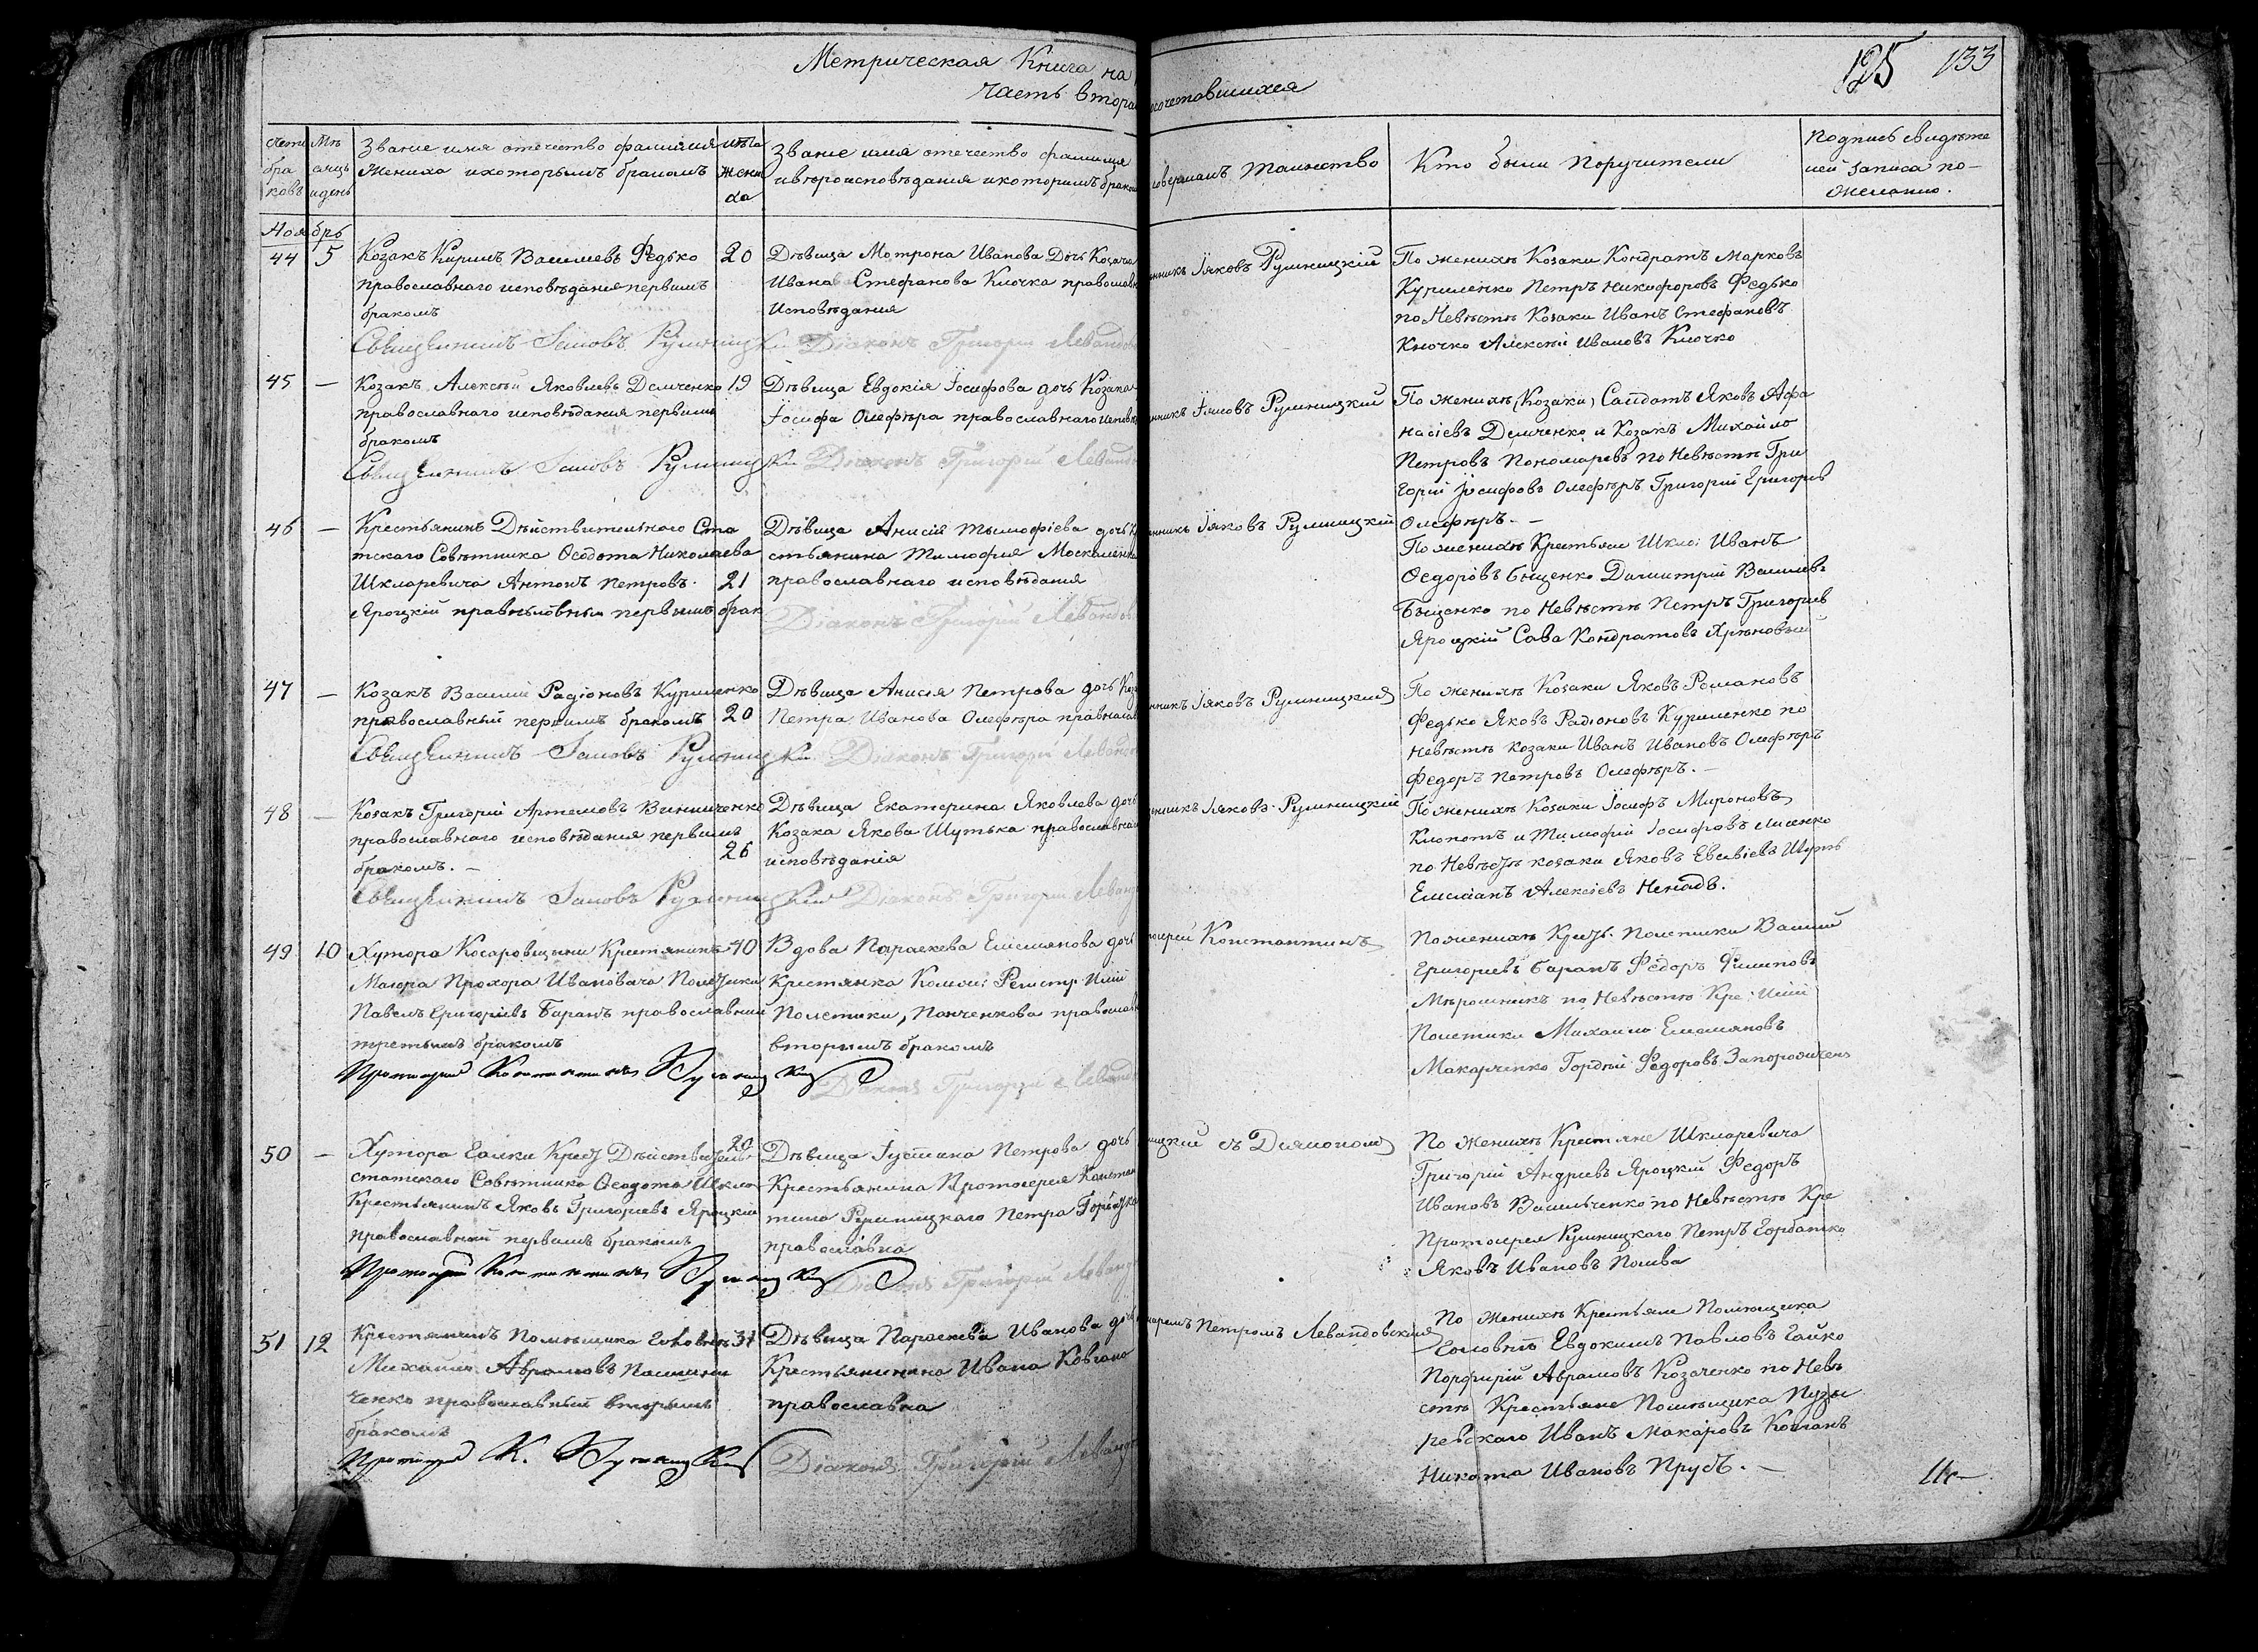 Метрическая Книга на
часть втора
сочетавшихся
125 133
Звание имя отечество фамилия
жениха и которымъ бракомъ
лѣта
жени
ха
Звание имя отечество фамилия
и вѣроисповѣдания и которимъ брако
совершалъ таинство
Кто были поручители
Подпись свидѣте
лей записа по
желанию.
Ноябрь
44 5 Козакъ Кирилъ Василиевъ Федько 20
православнаго исповѣдания первимъ
бракомъ
Дѣвица Мотрона Иванова Дочь Козака
Ивана Стефанова Клочка православн
Исповѣдания
Діаконъ Григорий Левандов
нникъ Іяковъ Румницкій
По женихѣ Козаки Кондратъ Марковъ
Куриленко Петръ Никифоровъ Федько
по Невѣстѣ Козаки Иванъ Стефановъ
Клочко Алексѣй Ивановъ Клочко
45 — Козакъ Алексѣй Яковлевъ Демченко 19
православнаго исповѣдания первимъ
бракомъ
Дѣвица Евдокія Іосифова дочь Козака
Іосифа Олефѣра православнаго исповѣ
Діаконъ Григорій Левандо
нникъ Іяковъ Румницкий
По женихѣ (Козаки) Салдатъ Яковъ Афа
насіевъ Демченко и Козакъ Михайло
Петровъ Пономаревъ по Невѣстѣ Гри
горій Іосифовъ Олефѣръ Григорій Григорьев
Олефѣръ. —
46 — Крестьянинъ Дѣйствительного Ста
тскаго Совѣтника Феодота Николаева
Шкларевича Антонъ Петровъ 21
Яроцкій первимъ брак
Дѣвица Анисія Тымофіева дочь К
стьянина Тимофия Москаленка
православнаго исповѣдания
Діаконъ Григорій Левандов
нникъ Іяковъ Румницкій
По женихѣ Крестьяне Шкла: Иванъ
Федоровъ Бищенко Димитрій Василіевъ
Бищенко по Невѣстѣ Петръ Григориев
Яроцкій Сава Кондратовъ Хрѣновый
47 — Козакъ Василий Радіоновъ Куриленко
православный первимъ бракомъ 20
Дѣвица Анисія Петрова дочь Коза
Петра Иванова Олефѣра православ
Діаконъ Григорій Левандо
нникъ Іяковъ Румницкий
По женихѣ Козаки Яковъ Романовъ
Федько Яковъ Радионовъ Куриленко по
Невѣстѣ козаки Иванъ Ивановъ Олефѣръ
Федоръ Петровъ Олефѣръ. —
48 — Козакъ Григорій Артемовъ Винниченко
православнаго исповѣдания первимъ
бракомъ. — 26
Дѣвица Екатерина Яковлева дочь
Козака Якова Шутька православнаг
исповѣданія
Діаконъ Григорий Леванд
нникъ Іяковъ Румницкий
По женихѣ Козаки Іосифъ Мироновъ
Клопотъ и Тимофий Іосифовъ Лисенко
по Невѣстѣ козаки Яковъ Евсѣвіевъ Шутъ
Емеліанъ Алексіевъ Ненадъ.
49 10 Хутора Косаровщыни Крестянинъ 40
Маіора Прохора Ивановича Полетики
Павелъ Григорієвъ Баранъ православний
третьимъ бракомъ
Протоиерей Константинъ Румницкий
Вдова Параскева Емелиянова дочь
Крестянка Колеж: Регистр. Илии
Полетики, Панченкова православн
вторимъ бракомъ
Діаконъ Григорій Леванд
иерей Константинъ
По женихѣ Крест. Полетики Василий
Григориевъ Баранъ Федоръ Филиповъ
Мѣрошникъ по Невѣстѣ Кре: Илии
Полетики Михаило Емелияновъ
Макарченко Гордѣй Федоровъ Запорожченк
50 — Хутора Галки Крест Дѣйствител 20
статскаго Совѣтника Феодота Шкла
Крестьянинъ Яковъ Григориевъ Яроцкий
православный первымъ бракомъ
Протоиерей Константинъ Румницкий
Дѣвица Іустина Петрова дочь
Крестьянина Протоиерея Констан
тина Румницкаго Петра Горбатка
православна
Діаконъ Григорій Леванд
ицкий съ Діякономъ
По Женихѣ Крестяне Шкларевича
Григорій Андриевъ Яроцкий Федоръ
Ивановъ Васильченко по Невѣстѣ Кре
Протоиерея Румницкаго Петръ Горбатко
Яковъ Ивановъ Полива
51 12 Крестянинъ Помѣщика Головнѣ 31
Михаилъ Аврамовъ
православный вторымъ
бракомъ
Протоиерей К. Румницкий
Дѣвица Параскева Иванова доч
Крестьянинина Ивана Ковгана
православна
Діаконъ Григорій Леванд
Петромъ Левандовским
По Женихѣ Крестьяне Помѣщика
Головнѣ Евдокимъ Павловъ Гайко
Порфирій Аврамовъ Козаченко по Невѣ
стѣ Крестьяне Помѣщика Пузы
ревскаго Иванъ Макаровъ Ковганъ
Никита Ивановъ Прусъ. —